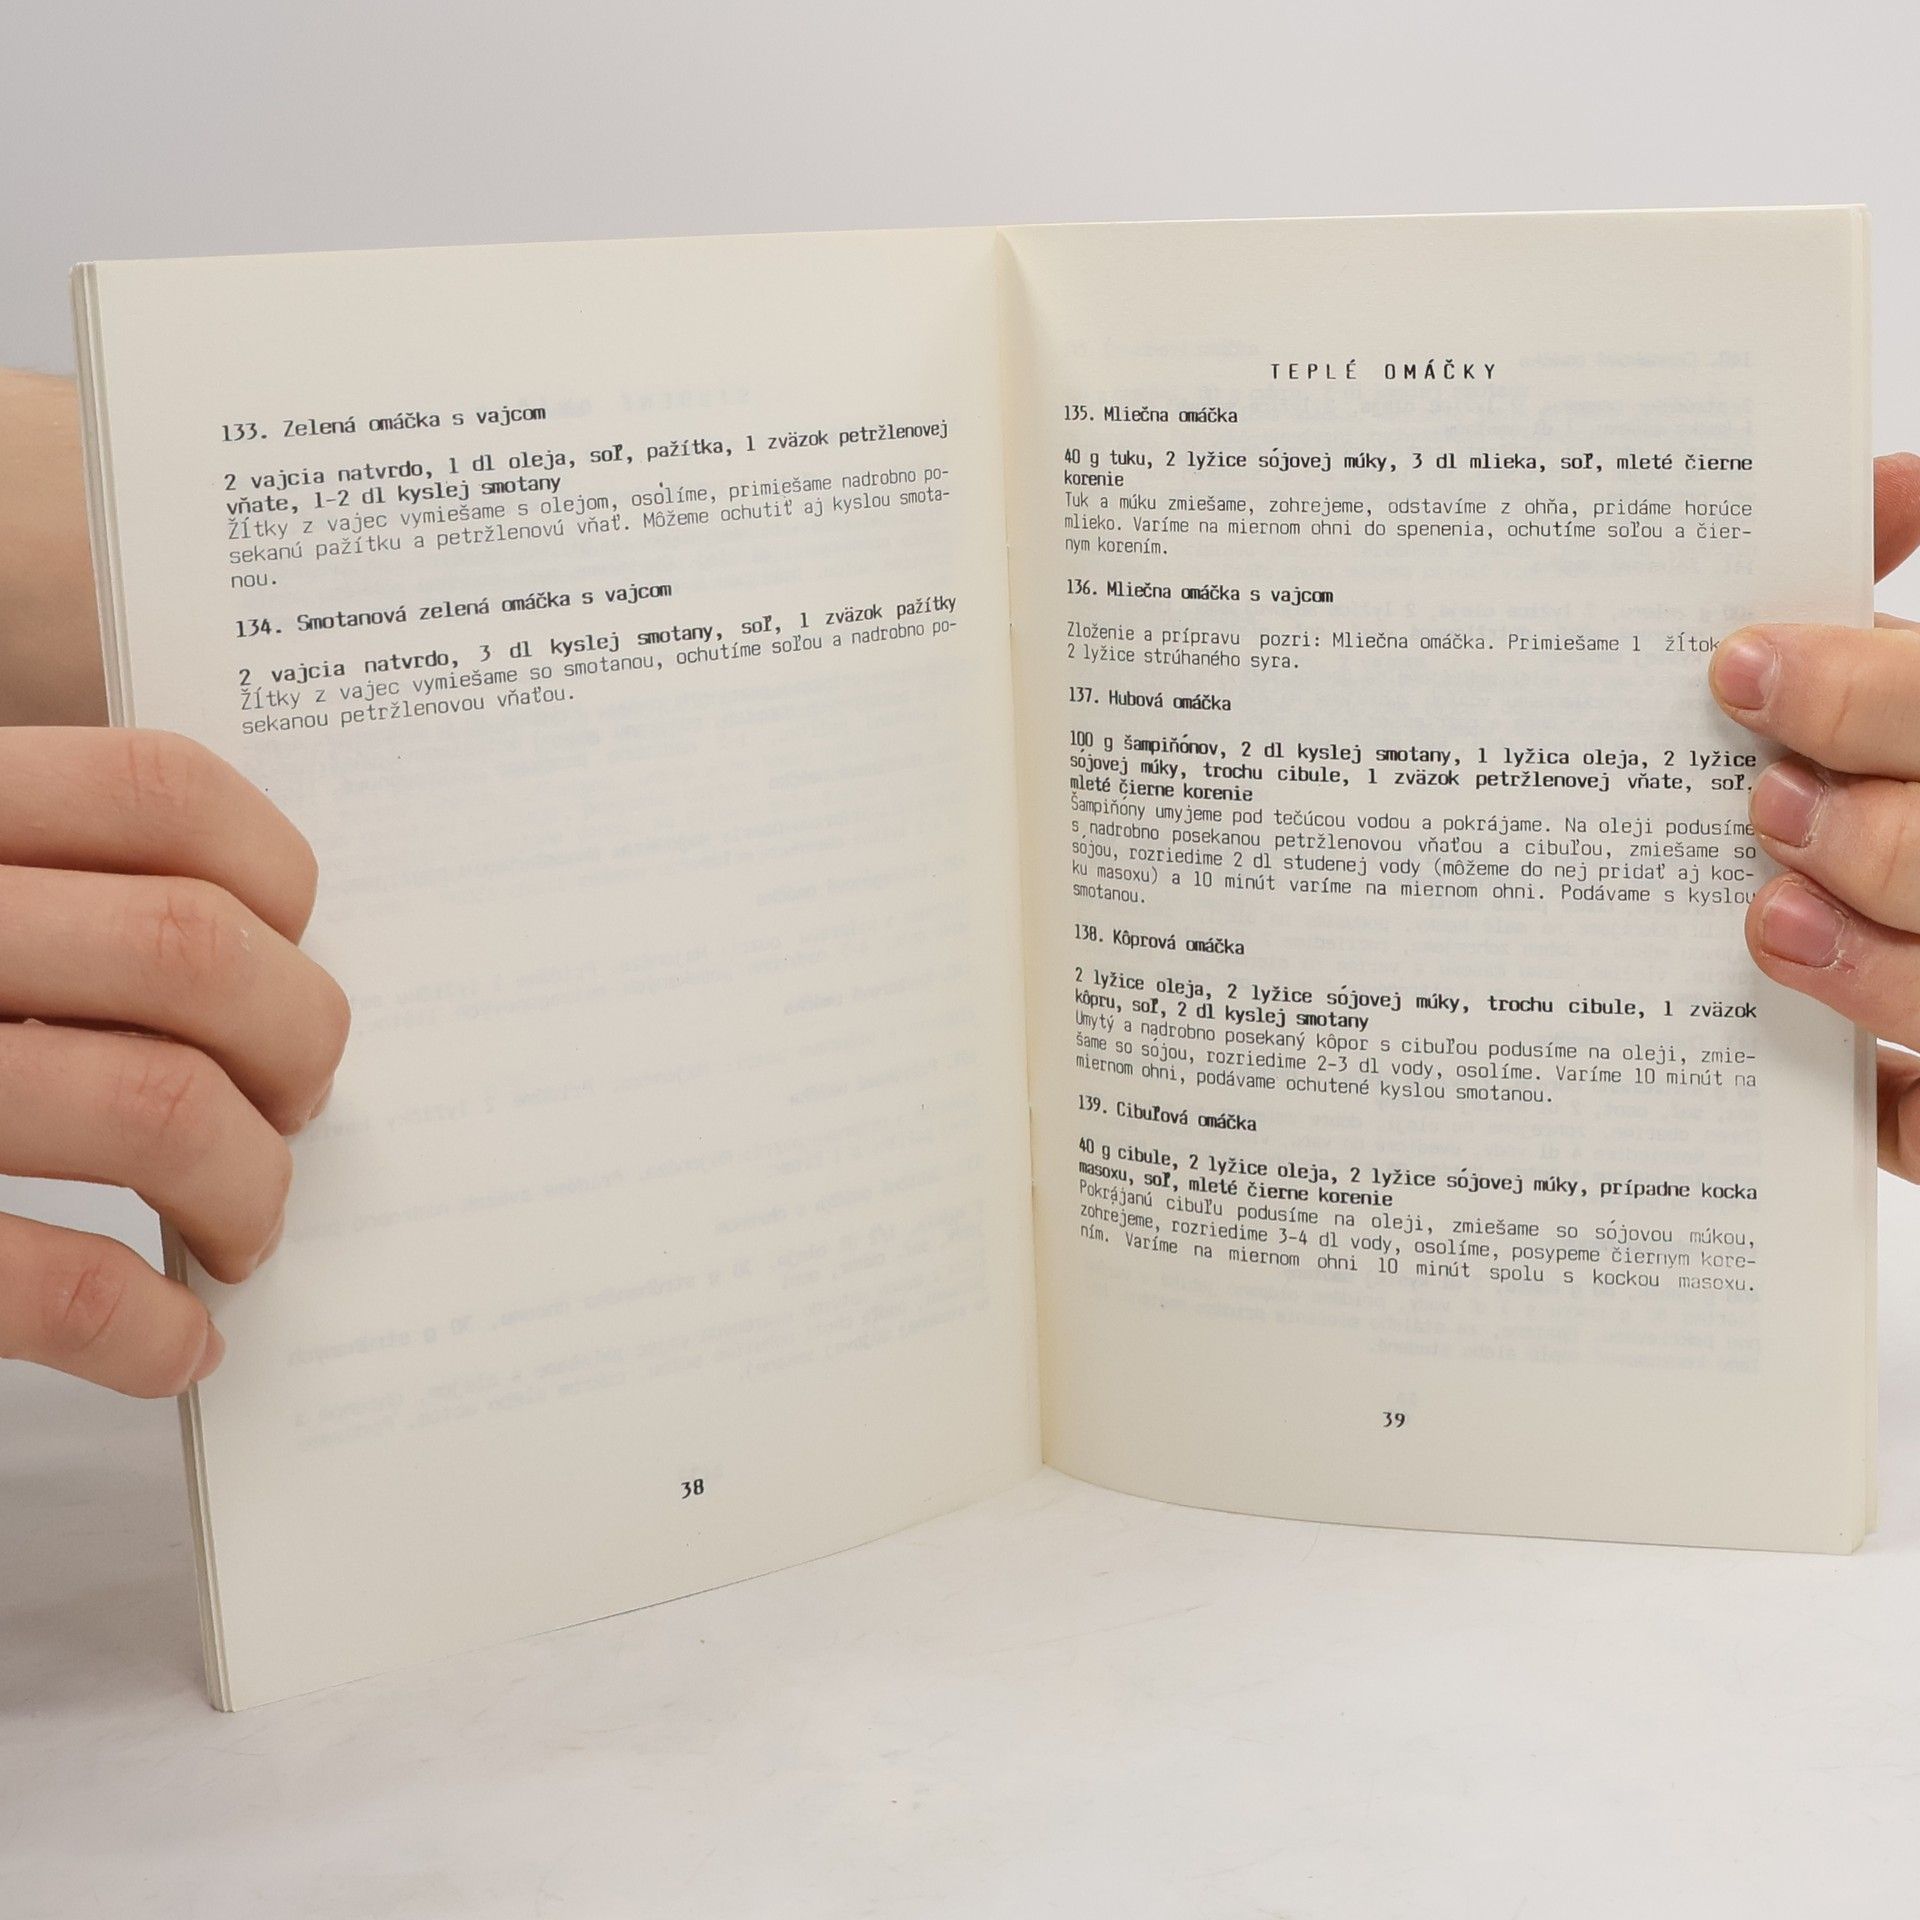 133. Zelená omáčka s vajcom
2 vajcia natvrdo, 1 dl oleja, soľ, pažítka, 1 zväzok petržlenovej
vňate, 1-2 dl kyslej smotany
Žítky z vajec vymiešame s olejom, osolíme, primiešame nadrobno po-
sekanú pažítku a petržlenovú vňať. Môžeme ochutiť aj kyslou smota-
nou.
134. Smotanová zelená omáčka s vajcom
2 vajcia natvrdo, 3 dl kyslej smotany, soľ, 1 zväzok pažítky
Žítky z vajec vymiešame so smotanou, ochutíme soľou a nadrobno po-
sekanou petržlenovou vňaťou.
38
TEPLÉ OMÁČKY
135. Mliečna omáčka
40 g tuku, 2 lyžice sójovej múky, 3 dl mlieka, soľ, mleté čierne
korenie
Tuk a múku zmiešame, zohrejeme, odstavíme z ohňa, pridáme horúce
mlieko. Varíme na miernom ohni do spenenia, ochutíme soľou a čier-
nym korením.
136. Mliečna omáčka s vajcom
Zloženie a prípravu pozri: Mliečna omáčka. Primiešame 1 žítok
2 lyžice strúhaného syra.
137. Hubová omáčka
100 g šampiňónov, 2 dl kyslej smotany, 1 lyžica oleja, 2 lyžice
sójovej múky, trochu cibule, 1 zväzok petržlenovej vňate, soľ,
mleté čierne korenie
Šampiňóny umyjeme pod tečúcou vodou a pokrájame. Na oleji podusíme
s nadrobno posekanou petržlenovou vňaťou a cibuľou, zmiešame so
sójou, rozriedime 2 dl studenej vody (môžeme do nej pridať aj koc-
ku masoxu) a 10 minút varíme na miernom ohni. Podávame s kyslou
smotanou.
138. Kôprová omáčka
2 lyžice oleja, 2 lyžice sójovej múky, trochu cibule, 1 zväzok
kôpru, soľ, 2 dl kyslej smotany
Umytý a nadrobno posekaný kôpor s cibuľou podusíme na oleji, zmie-
šame so sójou, rozriedime 2-3 dl vody, osolíme. Varíme 10 minút na
miernom ohni, podávame ochutené kyslou smotanou.
139. Cibuľová omáčka
40 g cibule, 2 lyžice oleja, 2 lyžice sójovej múky, prípadne kocka
masoxu, soľ, mleté čierne korenie
Pokrájanú cibuľu podusíme na oleji, zmiešame so sójovou múkou,
zohrejeme, rozriedime 3-4 dl vody, osolíme, posypeme čiernym kore-
ním. Varíme na miernom ohni 10 minút spolu s kockou masoxu.
39